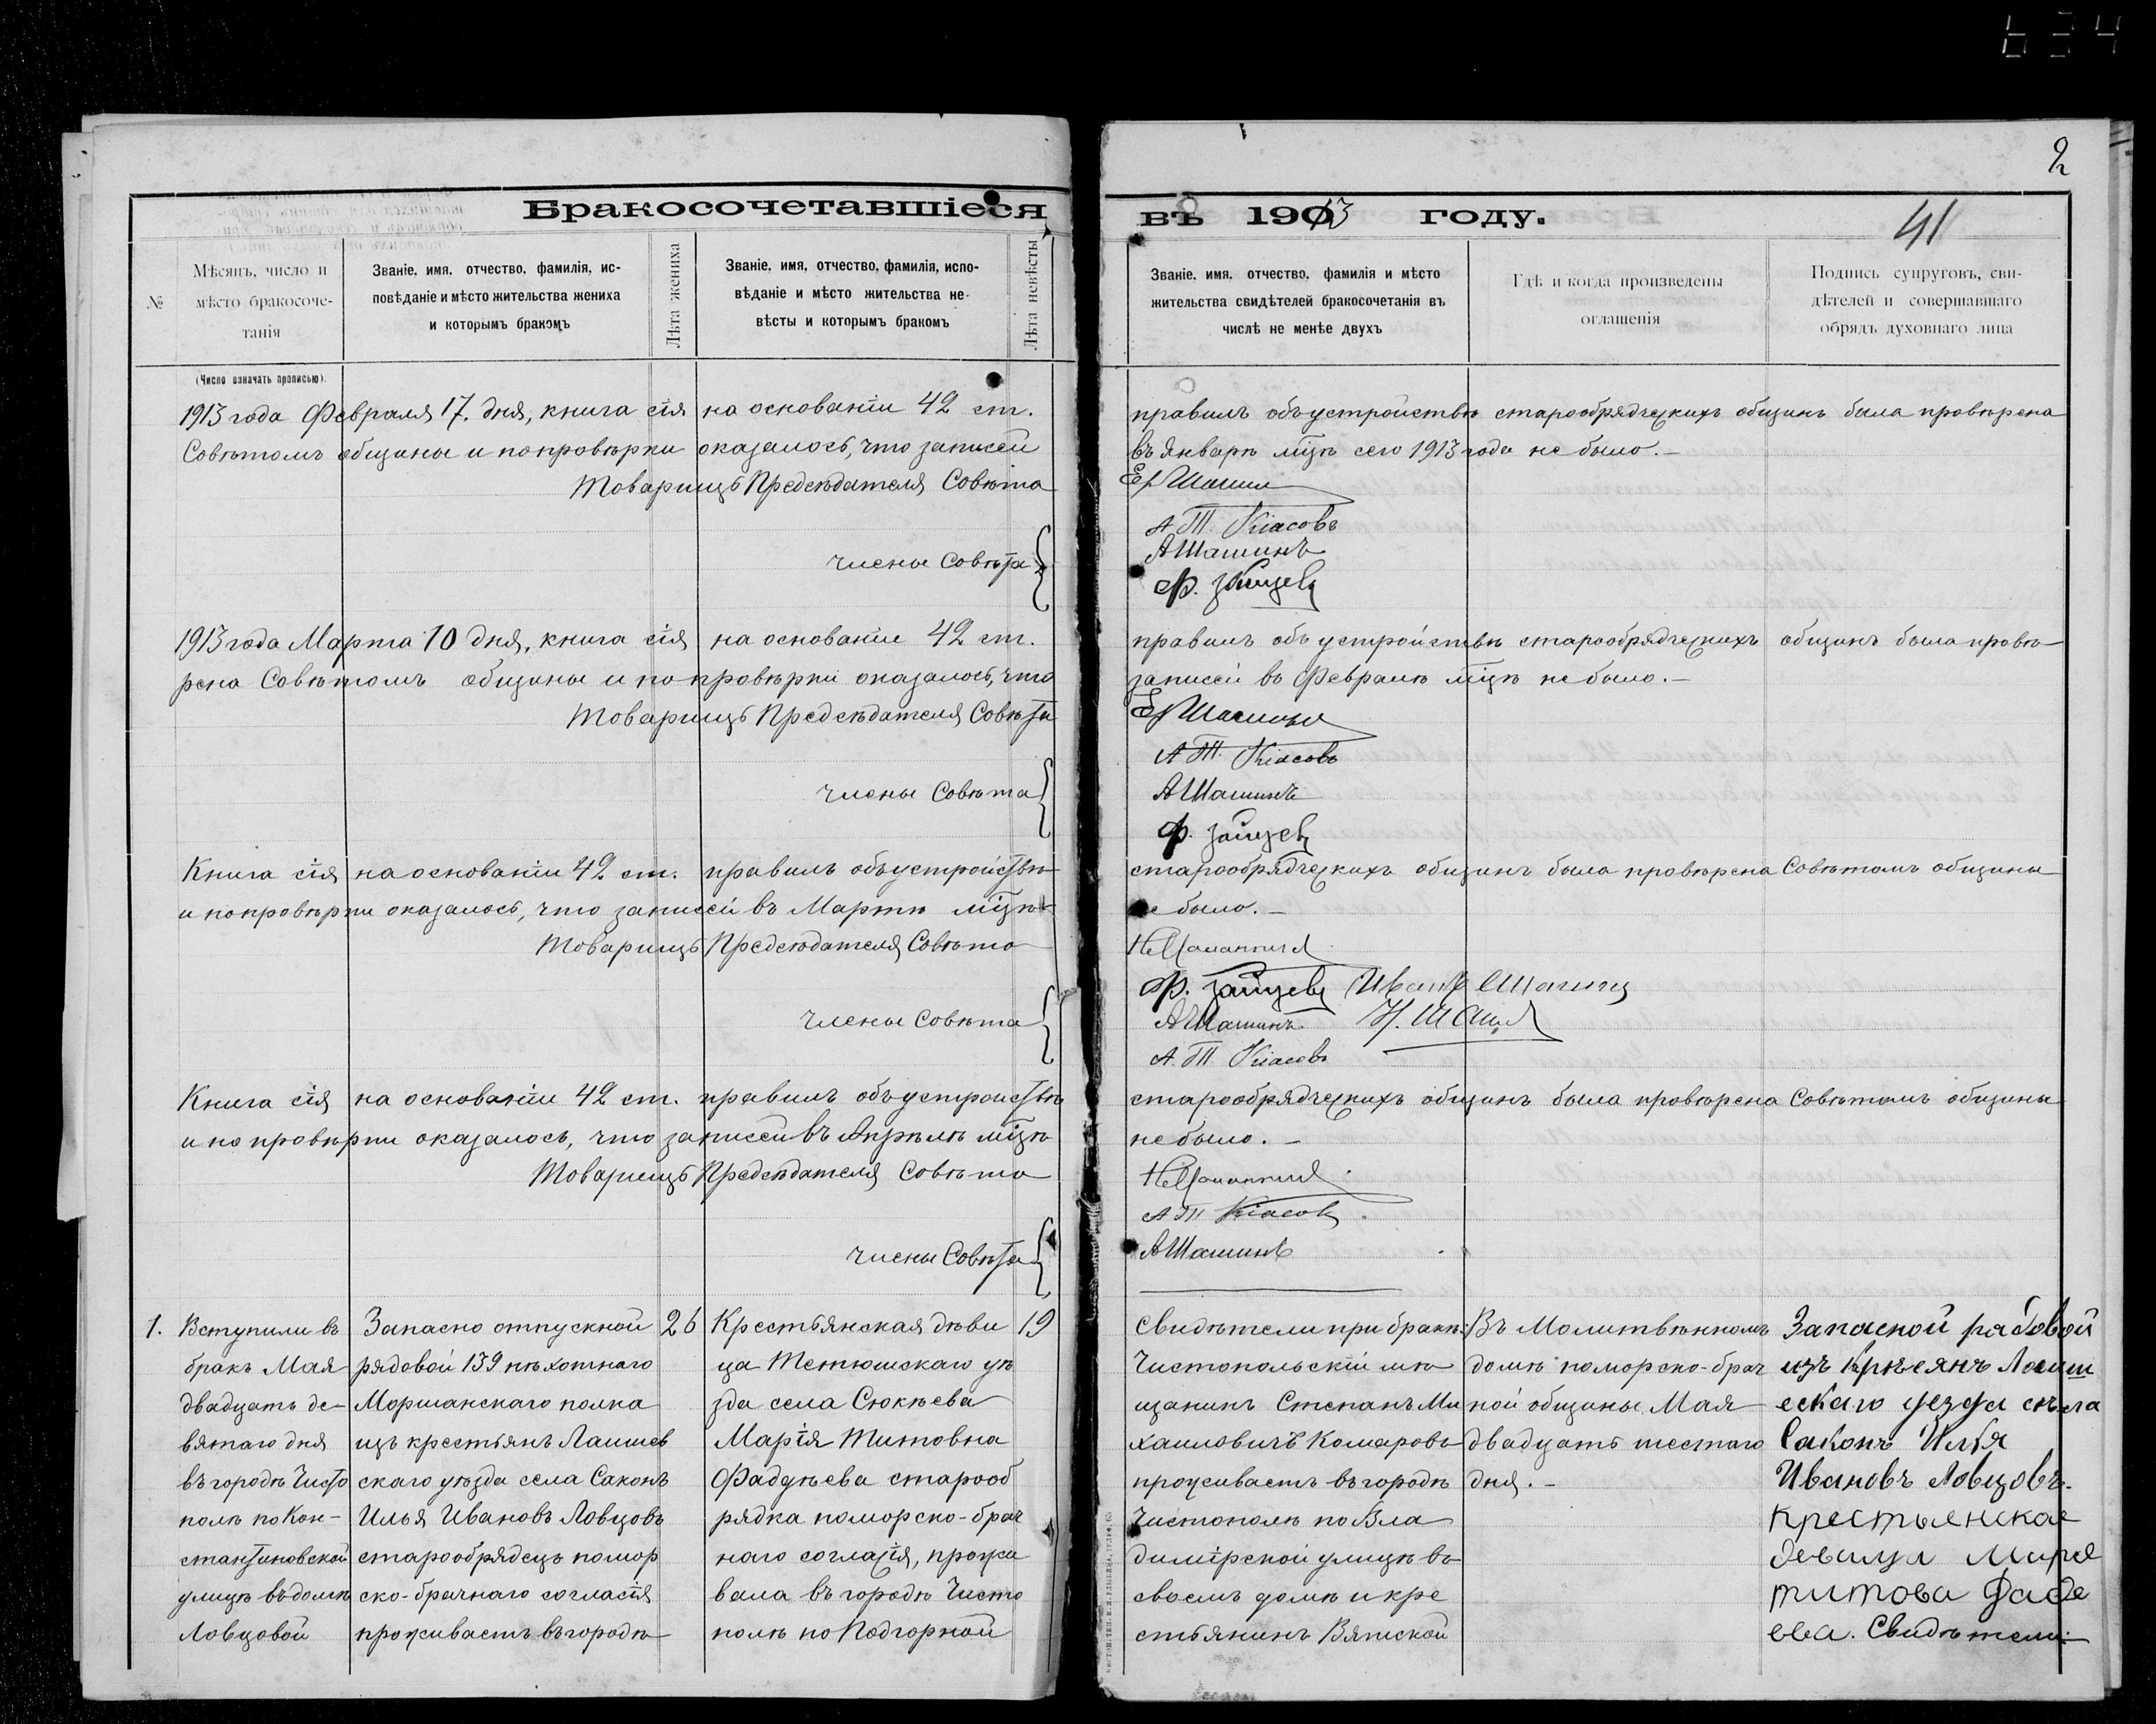 634
2
41
Бракосочетавшіеся
въ 1913 году.
№
Мѣсяцъ, число и
мѣсто бракосоче-
танія
Званіе, имя, отчество, фамилія, ис-
повѣданіе и мѣсто жительства жениха
и которымъ бракомъ
Лѣта жениха
Званіе, имя, отчество, фамилія, испо-
вѣданіе и мѣсто жительства не-
вѣсты и которымъ бракомъ
Лѣта невѣсты
Званіе, имя, отчество, фамилія и мѣсто
жительства свидѣтелей бракосочетанія въ
числѣ не менѣе двухъ
Гдѣ и когда произведены
оглашенія
Подпись супруговъ, сви-
дѣтелей и совершавшаго
обрядъ духовнаго лица
(Число означать прописью).
1913 года Февраля 17. дня, книга сія на основаніи 42 ст. правилъ объ устройствѣ старообрядческихъ общинъ была провѣрена
Совѣтомъ общины и по провѣрки оказалось, что записей въ Январѣ м҃цѣ сего 1913 года не было. –
Товарищъ Предсѣдателя Совѣта
Е Шашин
А. Т. Кіасовъ
члены Совѣта
А Шашинъ
Ф. Зайцевъ
1913 года Марта 10 дня, книга сія на основаніи 42 ст. правилъ объ устройствѣ старообрядческихъ общинъ была провѣ-
рена Совѣтомъ общины и по провѣрки оказалось, что записей въ Февралѣ м҃цѣ не было. –
Товарищъ Предсѣдателя Совѣта
Е Шашин
А Т. Кіасовъ
члены Совѣта
А Шашинъ
Ф. Зайцевъ
Книга сія на основаніи 42 ст. правилъ объ устройствѣ старообрядческихъ общинъ была провѣрена Совѣтомъ общины
и по провѣрки оказалось, что записей въ Мартѣ м҃цѣ не было. –
Товарищъ Предсѣдателя Совѣта
Ф. Зайцевъ Иванъ Шашинъ
члены Совѣта
А Шашинъ Н. Шашин
А. Т. Кіасовъ
Книга сія на основаніи 42 ст. правилъ объ устройствѣ старообрядческихъ общинъ была провѣрена Совѣтомъ общины
и по провѣрки оказалось, что записей въ Апрѣлѣ м҃цѣ не было. –
Товарищъ Предсѣдателя Совѣта
А Т Кіасовъ
члены Совѣта
А Шашинъ
1.
Вступили въ
бракъ Мая
двадцать де-
вятаго дня
въ городѣ Чисто
полѣ по Кон-
стантиновской
улицѣ въ домѣ
Ловцовой
Запасно отпускной
рядовой 139 пѣхотнаго
Моршанскаго полка
изъ крестьянъ Лаишев
скаго уѣзда села Саконъ
Илья Ивановъ Ловцовъ
старообрядецъ помор
ско-брачнаго согласія
проживаетъ въ городѣ
26
Крестьянская дѣви
ца Тетюшскаго уѣ
зда села Сюкѣева
Марія Титовна
Фадѣева старооб
рядка поморско-брач
наго согласія, прожи
вала въ городѣ Чисто
полѣ по Подгорной
19
Свидѣтели при бракѣ:
Чистопольскій мѣ
щанинъ Степанъ Ми
хаиловичъ Комаровъ
проживаетъ въ городѣ
Чистополѣ по Вла
димірской улицѣ въ
своемъ домѣ и кре
стьянинъ Вятской
Въ Молитвѣнномъ
домѣ поморско-брач
ной общины Мая
двадцать шестаго
дня. –
Запасной рядовой
изъ Крѣсянъ Лаиш
ескаго уезда сѣла
Саконъ Илья
Ивановъ Ловцовъ.
Крестьянская
девица Марея
титова Фаде
ева. Свидѣтели: